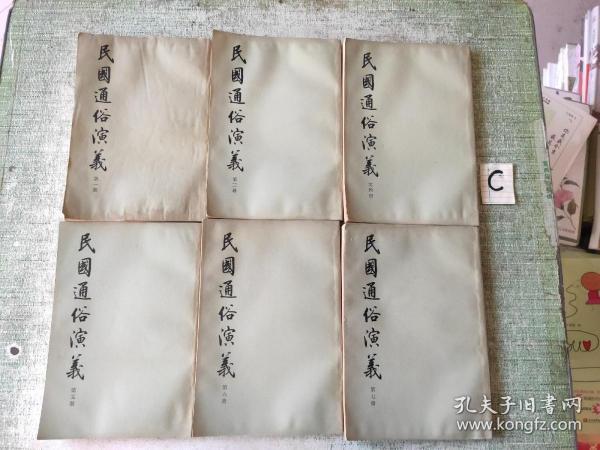 民國通俗演義
第一册
民國通俗演義
第二册
民國通俗演義
第四册
C
民國通俗演義
第五册
民國通俗演義
第六册
民國通俗演義
第七册
孔夫子旧书网
www.kongfz.com